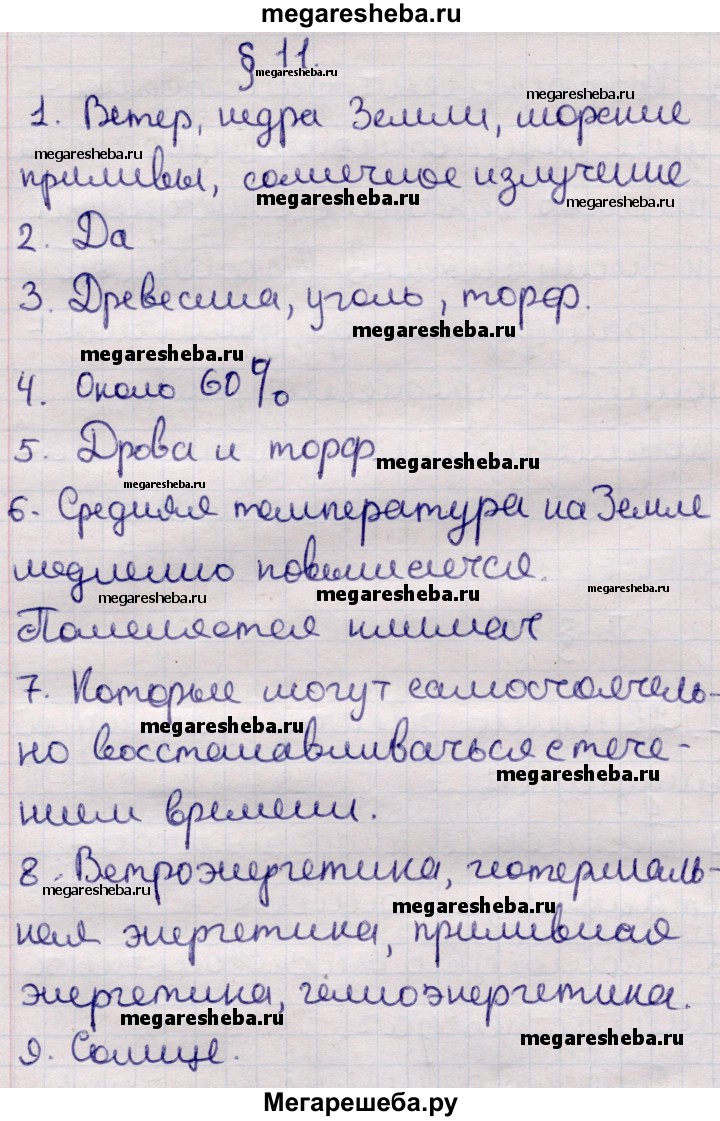 megaresheba.ru
§ 11.
megaresheba.ru
1. Ветер, недра Земли, морские
megaresheba.ru
приливы, солнечное излучение
megaresheba.ru
megaresheba.ru
2. Да
3. Древесина, уголь, торф.
megaresheba.ru
megaresheba.ru
4. Около 60%
5. Дрова и торф
megaresheba.ru
megaresheba.ru
6. Средняя температура на Земле
медленно повышается.
megaresheba.ru
megaresheba.ru
Поменяется климат
7. Которые могут самостоятель-
megaresheba.ru
но восстанавливаться с тече-
megaresheba.ru
нием времени.
8. Ветроэнергетика, геотермаль-
megaresheba.ru
megaresheba.ru
ная энергетика, приливная
энергетика, гелиоэнергетика.
megaresheba.ru
megaresheba.ru
9. Солнце.
Мегарешеба.ру